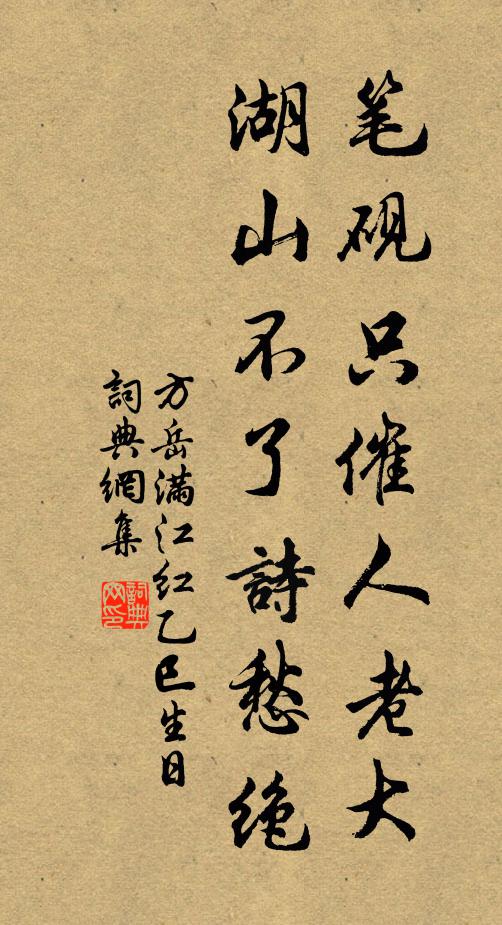 笔砚只催人老大
湖山不了詩愁绝
方岳满江红乙巳生日
詞典網集
詞典网印